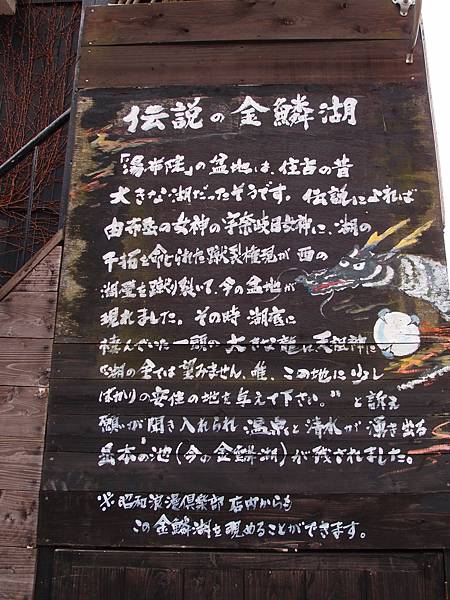 伝説の金鱗湖
「湯布院」の盆地は、往古の昔
大きな湖だったそうです。伝説によれば
由布岳の女神の宇奈岐日女神に、湖の
干拓を命じられた蹴裂権現が西の
湖壁を蹴り裂いて、今の盆地が
現れました。その時湖底に
棲んでいた一頭の大きな龍は天祖神に
"湖の全ては望みません、唯、この地に少し
ばかりの安住の地を与えて下さい。"と訴え
願いが聞き入れられ温泉と清水が湧き出る
岳本の池(今の金鱗湖)が残されました。
※昭和浪漫倶楽部店内からも
この金鱗湖を眺めることができます。